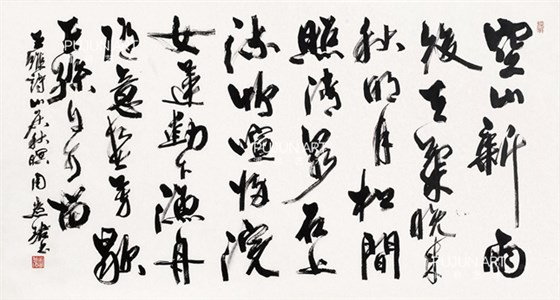 空山新雨
後天氣晚來
秋明月松間
照清泉石上
流竹喧歸浣
女蓮動下漁舟
隨意春芳歇
王孫自可留
王維詩山居秋暝周
PUJUN ART
PUJUN ART
PUJUN ART